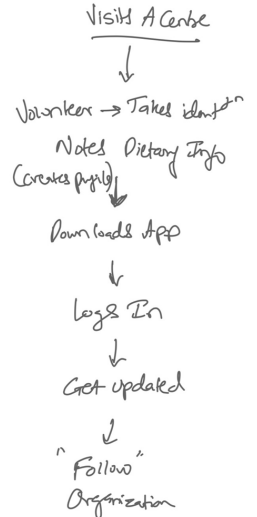 Visits A Centre
Volunteer → Takes identⁿ
Notes Dietary Info
(creates profile)
Downloads App
Logs In
Get updated
"Follow"
Organization